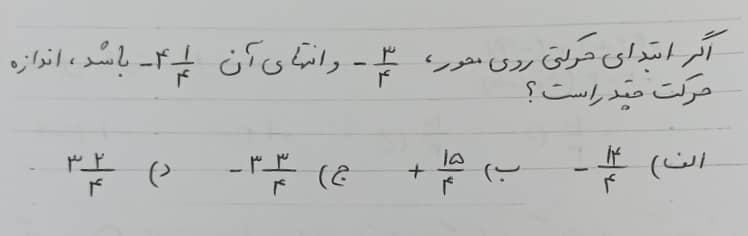 اگر ابتدای حرکتی روی محور، -۳/۴ و انتهای آن -۴ ۱/۴ باشد، اندازه
حرکت چقدر است؟
الف) -۱۴/۴ ب) +۱۵/۴ ج) -۳ ۳/۴ د) ۳ ۲/۴